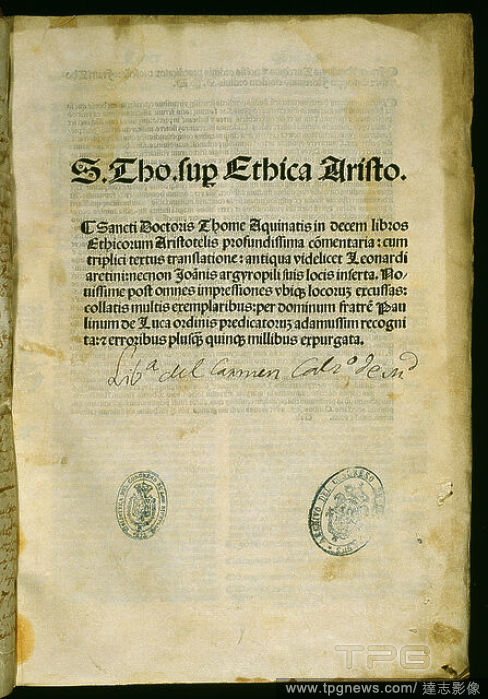 S. Tho. sup Ethica Aristo.
¶ Sancti Doctoris Thome Aquinatis in decem libros
Ethicorum Aristotelis profundissima cōmentaria: cum
triplici textus translatione: antiqua videlicet Leonardi
aretini necnon Joānis argyropili suis locis inserta. No-
uissime post omnes impressiones vbiqꝫ locoruꝫ excussas:
collatis multis exemplaribus: per dominum fratrē Pau
linum de Luca ordinis predicatoruꝫ adamussim recogni
ta: ⁊ erroribus plusqꝫ quinqꝫ millibus expurgata.
Lib.ª del Carmen Calz.º de
ARCHIVO DEL CONGRESO
TPG
www.tpgnews.com/達志影像